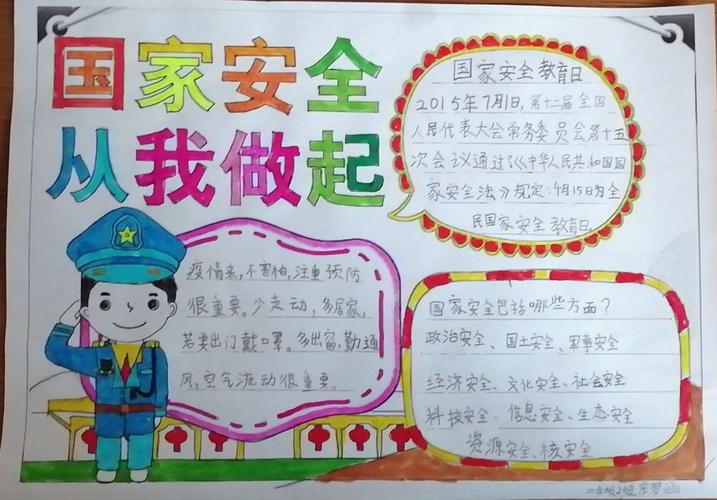 国家安全
从我做起
国家安全教育日
2015年7月1日,第十二届全国
人民代表大会常务委员会第十五
次会议通过了《中华人民共和国国
家安全法》规定:4月15日为全
民国家安全教育日。
疫情来,不害怕,注重预防
很重要。少走动,多居家,
若要出门戴口罩。多出窗,勤通
风,空气流动很重要。
国家安全包括哪些方面?
政治安全、国土安全、军事安全
经济安全、文化安全、社会安全
科技安全、信息安全、生态安全
资源安全、核安全